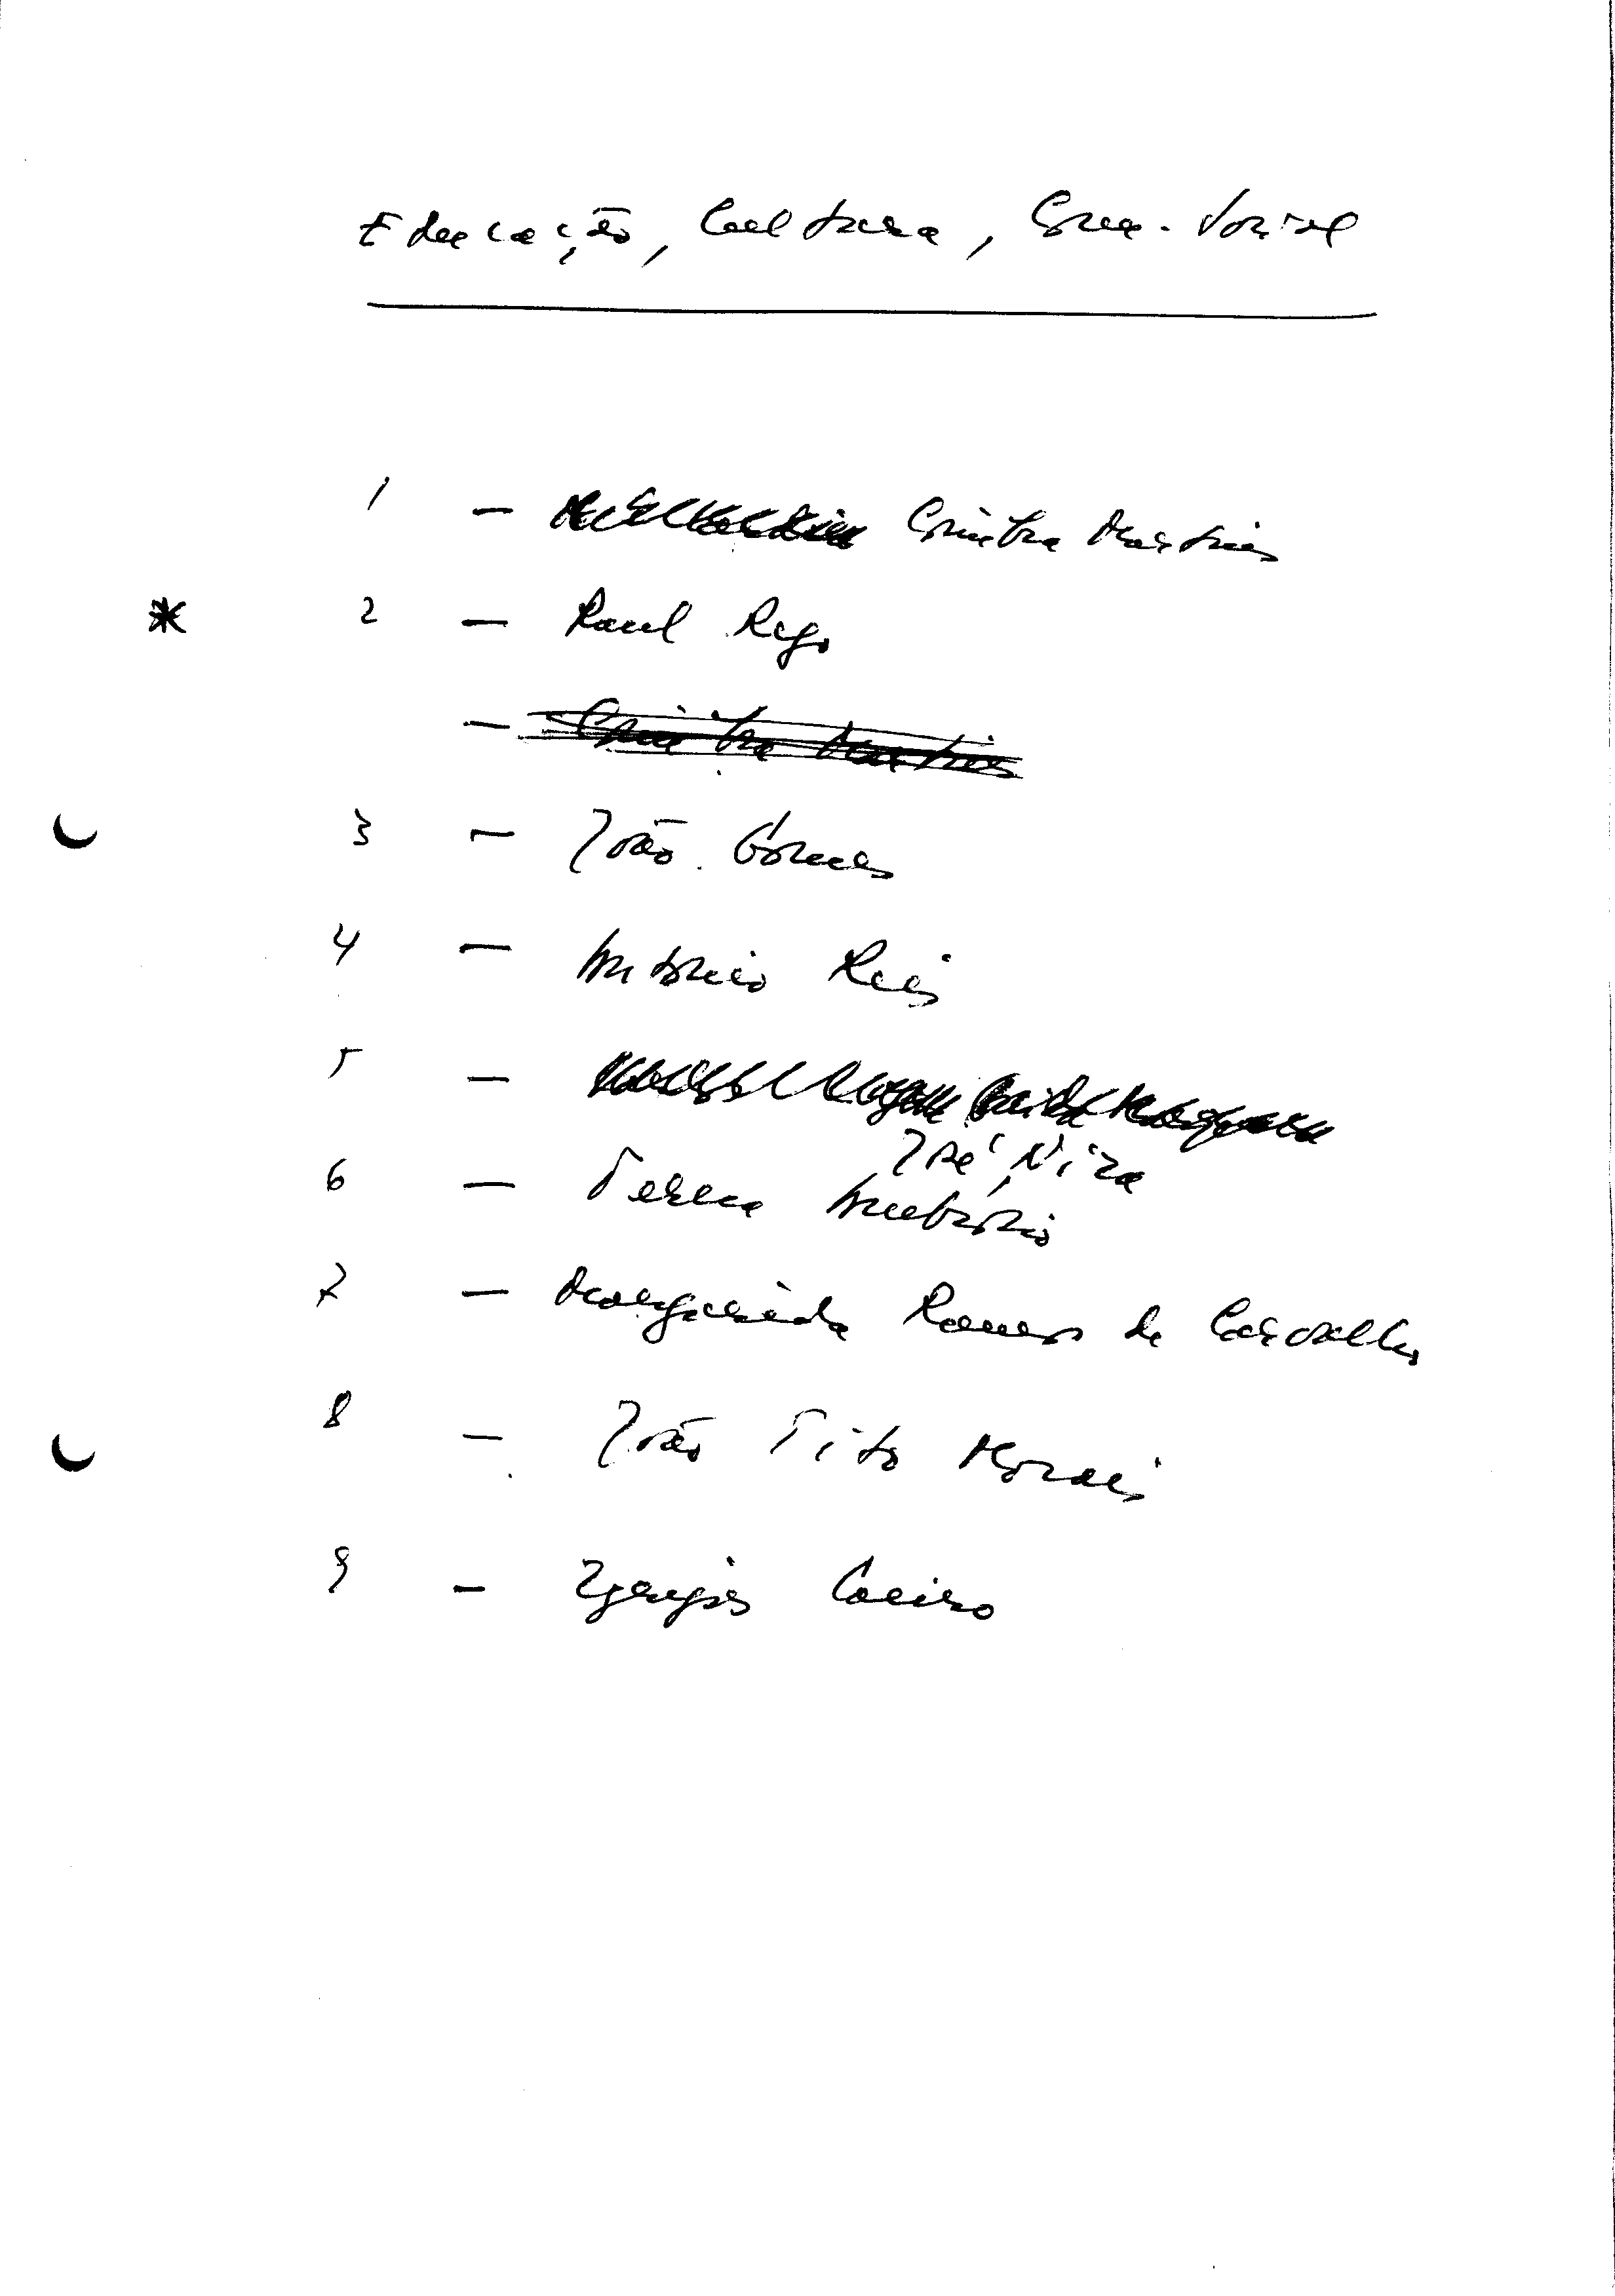 Educação, Cultura, Com. Social
1 - Coimbra Martins
* 2 - Raul Rego
- Coimbra Martins
3 - João Gomes
4 - António Reis
5 -
José Niza
6 - Teresa Ambrósio
7 - Margarida Ramos de Carvalho
8 - João Tito Morais
9 - Igrejas Caeiro